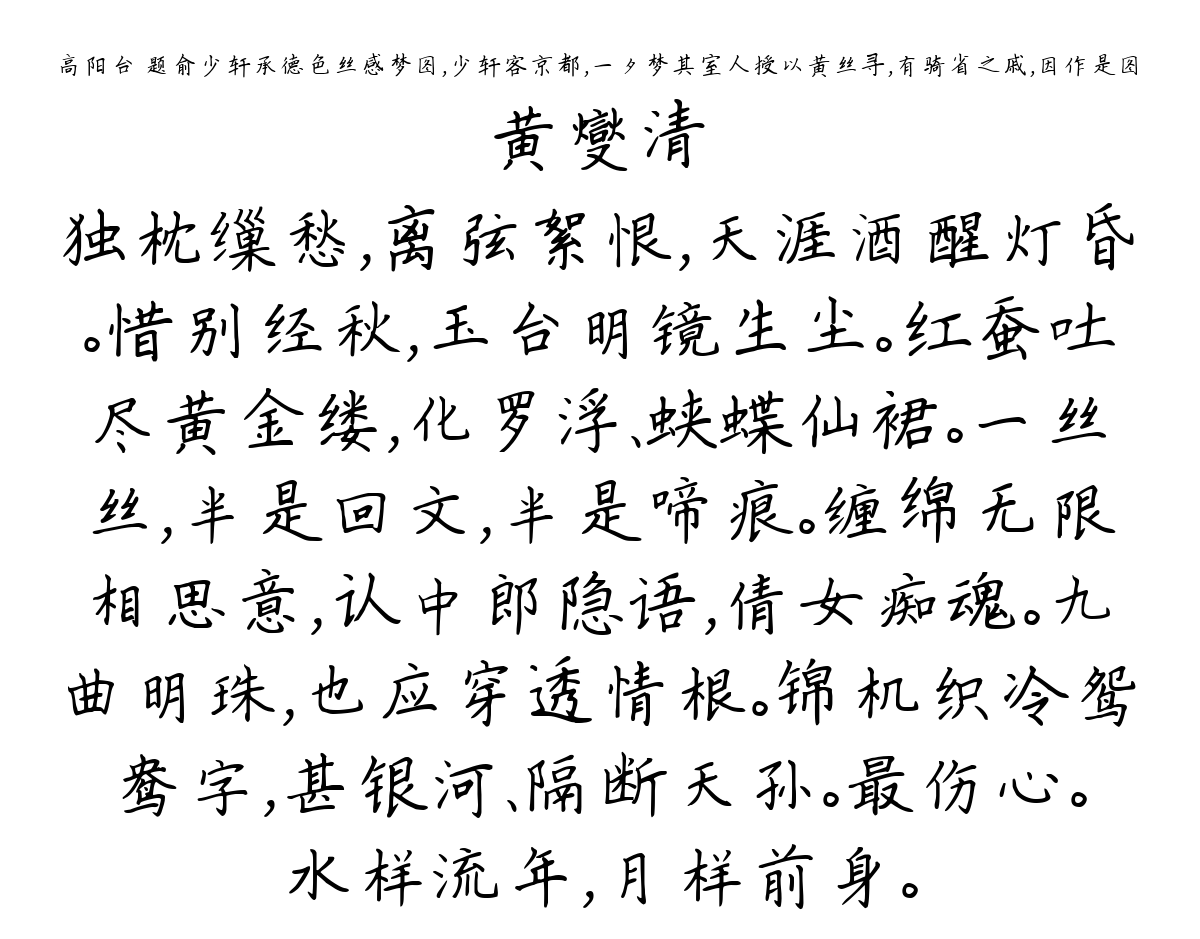 高阳台 题俞少轩承德色丝感梦图,少轩客京都,一夕梦其室人授以黄丝寻,有骑省之戚,因作是图
黄燮清
独枕缫愁,离弦絮恨,天涯酒醒灯昏
。惜别经秋,玉台明镜生尘。红蚕吐
尽黄金缕,化罗浮、蛱蝶仙裙。一丝
丝,半是回文,半是啼痕。缠绵无限
相思意,认中郎隐语,倩女痴魂。九
曲明珠,也应穿透情根。锦机织冷鸳
鸯字,甚银河、隔断天孙。最伤心。
水样流年,月样前身。